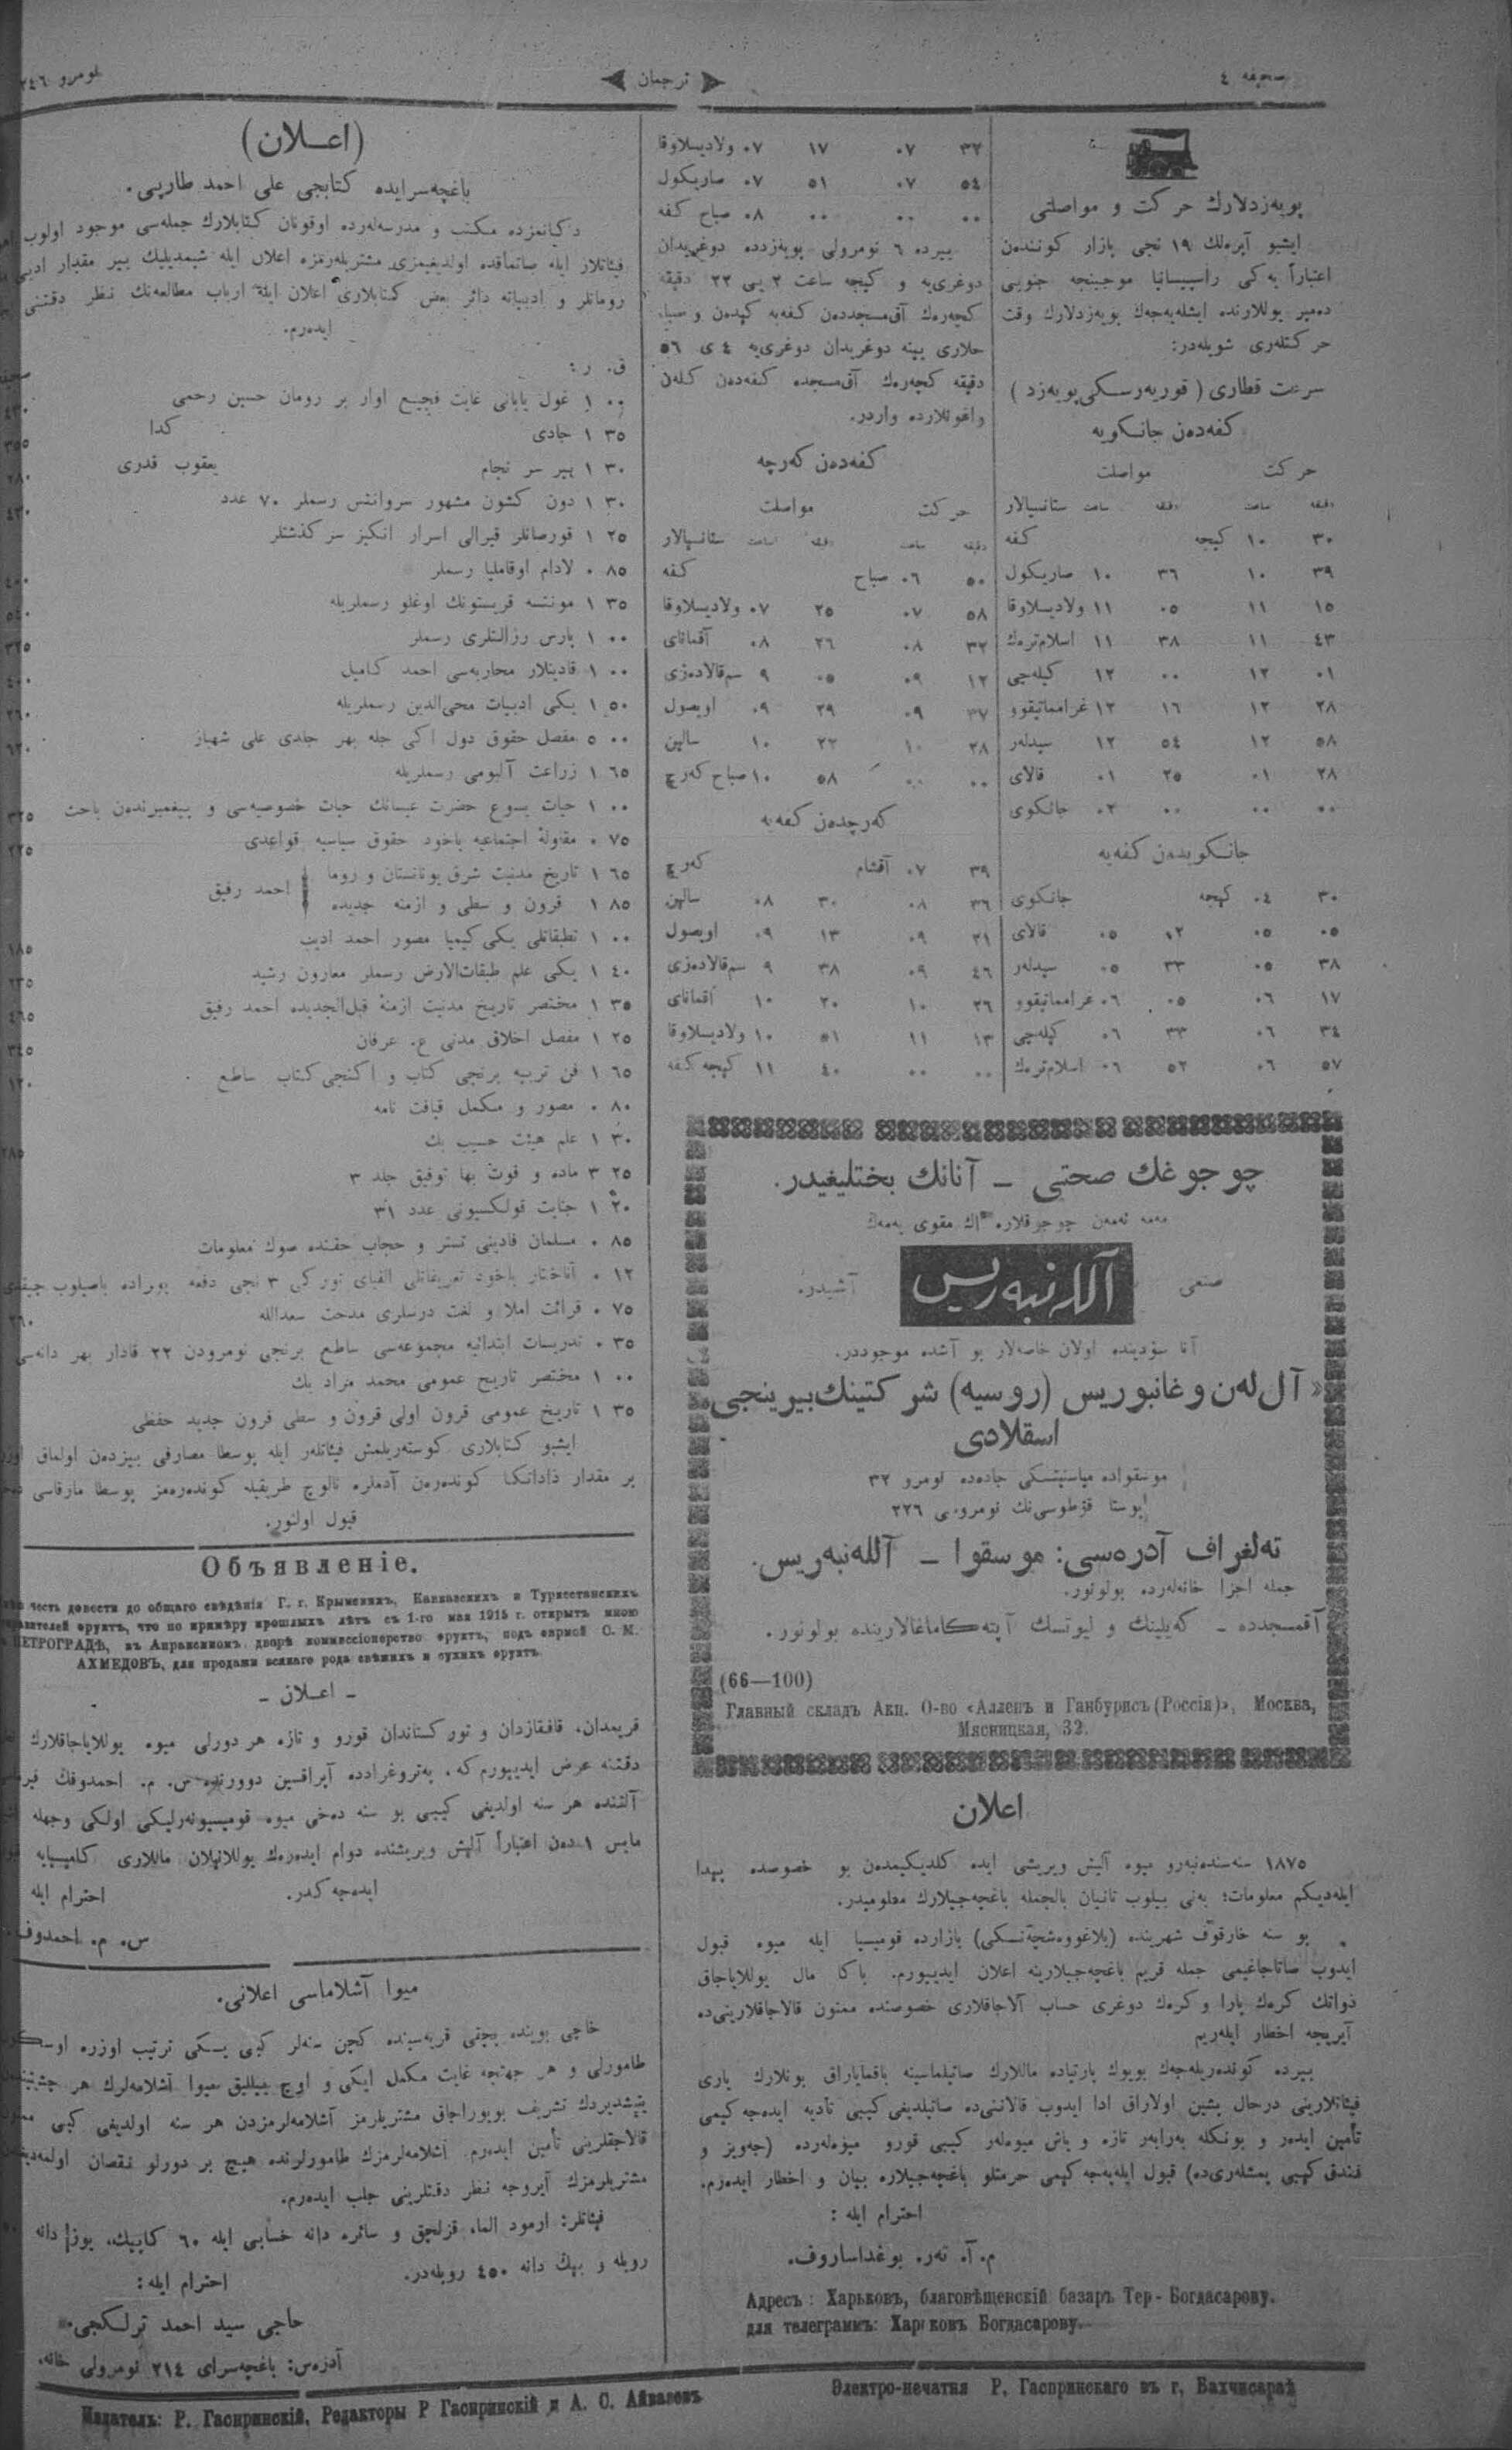 صحيفه ٤
ترجمان
نومرو ٢٤٦
پویەزدلارك حركت و مواصلتی
ایشبو آپرەلك ١٩ نجی بازار كونندەن
اعتباراً یەكی راسپیسانیا موجبنجه جنوبی
دەمیر یوللارندە ایشلەیەجەك پویەزدلارك وقت
حركتلەری شویلەدر:
سرعت قطاری ( قوریەرسكی پویەزد )
كفەدەن جانكویە
حركت مواصلت
دقیقه ساعت دقیقه ساعت ستانسیالار
٣٠ ١٠ كیجه كفه
٣٩ ١٠ ٣٦ ١٠ صاریكول
١٥ ١١ ٠٥ ١١ ولادیسلاوقا
٤٣ ١١ ٣٨ ١١ اسلام‌ترەك
٠١ ١٢ ٠٠ ١٢ كیلەچی
٢٨ ١٢ ١٦ ١٢ غرامماتیقوو
٥٨ ١٢ ٥٤ ١٢ سیدلەر
٢٨ ٠١ ٢٥ ٠١ قالای
٠٠ ٠٠ ٠٠ ٠٢ جانكوی
جانكویدەن كفەیە
٣٠ ٠٤ كیجه جانكوی
٠٥ ٠٥ ٠٢ ٠٥ قالای
٣٨ ٠٥ ٣٣ ٠٥ سیدلەر
١٧ ٠٦ ٠٥ ٠٦ غرامماتیقوو
٣٤ ٠٦ ٣٣ ٠٦ كیلەچی
٥٧ ٠٦ ٥٢ ٠٦ اسلام‌ترەك
٣٢ ٠٧ ١٧ ٠٧ ولادیسلاوقا
٥٤ ٠٧ ٥١ ٠٧ صاریكول
٠٠ ٠٠ ٠٠ ٠٨ صباح كفه
بیردە ٦ نومرولی پویەزددە دوغریدان
دوغری‌یە و كیجه ساعت ٢ یی ٢٢ دقیقه
كچەرەك آق‌مسجددەن كفەیە كیدەن و
دوغریدان دوغری‌یە ٤ ی ٥٦
دقیقه كچەرەك آق‌مسجدە كفەدەن كلەن
واغونلاردە واردر.
كفەدەن كەرچە
حركت مواصلت
دقیقه ساعت دقیقه ساعت ستانسیالار
٥٠ ٠٦ صباح كفه
٥٨ ٠٧ ٢٥ ٠٧ ولادیسلاوقا
٣٢ ٠٨ ٢٦ ٠٨ آقمانای
١٢ ٠٩ ٠٥ ٩ سم‌قالادەزی
٣٧ ٠٩ ٢٩ ٠٩ اویصول
٢٨ ١٠ ٢٢ ١٠ سالین
٠٠ ٠٠ ٥٨ ١٠ صباح كەرچ
كەرچدەن كفەیە
٣٩ ٠٧ آقشام كەرچ
٣٦ ٠٨ ٣٠ ٠٨ سالین
٢١ ٠٩ ١٣ ٠٩ اویصول
٤٦ ٠٩ ٣٨ ٩ سم‌قالادەزی
٢٦ ١٠ ٢٠ ١٠ آقمانای
١٣ ١١ ٥١ ١٠ ولادیسلاوقا
٠٠ ٠٠ ٤٠ ١١ كیجه كفه
چوجوغك صحتی — آنانك بختلیغیدر.
مەمە ئەمەن چوجوقلارە اك مقوی یەمەك
صنعی آللەنبەریس آشیدر.
آنا سوٴدیندە اولان خاصەلار بو آشدە موجوددر.
«آل لەن و غانبوریس (روسیه) شركتینك بیرینجی
اسقلادی
موسقوادە میاسنیتسكی جاده‌دە نومرو ٣٢
پوستا قۇطوسی‌نك نومروسی ٢٢٦
تەلغراف آدرەسی: موسقوا — آللەنبەریس.
جمله اجزا خانەلەردە بولونور.
آقمسجددە — كەیلینك و لیوتسك آپتەكاماغالاریندە بولونور.
(66—100)
Главный складъ Акц. О-во «Алленъ и Ганбурисъ (Россія)», Москва,
Мясницкая, 32.
اعلان
١٨٧٥ سنەسندەنبەرو میوە آلیش ویریشی ایدە كلدیكیمدەن بو خصوصدە پیدا
ایلەدیكم معلومات؛ یەنی بیلوب تانیان بالجمله باغچەجیلارك معلومیدر.
بو سنه خارقوف شهریندە بازاردە قومیسیا ایله میوە قبول
ایدوب صاتاجاغیمی جمله قریم باغچەجیلارینە اعلان ایدییورم. باكا مال یوللایاجاق
ذواتك كرەك پارا و كرەك دوغری حساب آلاجاقلاری خصوصندە ممنون قالاجاقلارینی‌دە
آیریجه اخطار ایلەریم
بیردە كوندەریلەجەك بویوك پارتیادە ماللارك صاتیلماسینە باقمایاراق بونلارك یاری
فیئاتلارینی درحال پیشین اولاراق ادا ایدوب قالانی‌دە صاتیلدیغی كیبی تأدیه ایدەجەكیمی
تأمین ایدەر و بونكله بەرابەر تازە و یاش میوەلەر كیبی قورو میوەلەردە (جەویز و
فندق كیبی یمشلەری‌دە) قبول ایلەیەجەكیمی حرمتلو باغچەجیلارە بیان و اخطار ایدەرم.
احترام ایله :
م. آ. تەر. بوغداساروف.
Адресъ : Харьковъ, благовѣщенскій базаръ Тер - Богдасарову.
для телеграммъ: Харьковъ Богдасарову.
(اعـلان)
باغچەسرایدە كتابجی علی احمد طارپی.
دكانمزدە مكتب و مدرسەلەردە اوقونان كتابلارك جملەسی موجود اولوب
فیئاتلار ایله صاتماقدە اولدیغیمزی مشتریلەرمزە اعلان ایله شیمدیلیك بیر مقدار ادبی
رومانلر و ادبیاتە دائر بعض كتابلاری اعلان ایله ارباب مطالعەنك نظر دقتنی
ایدەرم.
ق. ر:
٠٠ ١ غول یابانی غایت فجیع اوار بر رومان حسین رحمی
٣٥ ١ جادی كدا
٣٠ ١ بیر سر نجام یعقوب قدری
٣٠ ١ دون كشون مشهور سروانتس رسملر ٧٠ عدد
٢٥ ١ قورصانلر قیرالی اسرار انكیز سركذشتلر
٨٥ ٠ لادام اوقاملیا رسملر
٣٥ ١ مونتسه قریستونك اوغلو رسملریله
٠٠ ١ پارس رزالتلری رسملر
٠٠ ١ قادینلار محاربەسی احمد كامیل
٥٠ ١ یكی ادبیات محی‌الدین رسملریله
٠٠ ٥ مفصل حقوق دول اكی جلد بهر جلدی علی شهباز
٦٥ ١ زراعت آلبومی رسملریله
٠٠ ١ حیات یسوع حضرت عیسانك حیات خصوصیەسی و پیغمبرندەن باحث
٧٥ ٠ مقاوله اجتماعیه یاخود حقوق سیاسیه قواعدی
٦٥ ١ تاریخ مدنیت شرق یونانستان و روما
٨٥ ١ قرون وسطی و ازمنه جدیدە
احمد رفیق
٠٠ ١ تطبقاتلی یكی كیمیا مصور احمد ادیب
٤٠ ١ یكی علم طبقات‌الارض رسملر معارون رشید
٣٥ ١ مختصر تاریخ مدنیت ازمنه قبل‌الجدیدە احمد رفیق
٢٥ ١ مفصل اخلاق مدنی ع. عرفان
٦٥ ١ فن تربیه برنجی كتاب و اكنجی كتاب ساطع
٨٠ ٠ مصور و مكمل قیافت نامه
٣٠ ١ علم هیئت حسیب بك
٢٥ ٣ مادە و قوت بها توفیق جلد ٣
٢٠ ١ جنایت قولكسیونی عدد ٣١
٨٥ ٠ مسلمان قادینی تستر و حجاب حقندە صوك معلومات
١٢ ٠ آناختار یاخود تعریفاتلی الفبای توركی ٣ نجی دفعه بورادە باصیلوب
٧٥ ٠ قرائت املا و لغت درسلری مدحت سعدالله
٣٥ ٠ تدریسات ابتدائیه مجموعەسی ساطع برنجی نومرودن ٢٢ قادار بهر دانەسی
٠٠ ١ مختصر تاریخ عمومی محمد مراد بك
٣٥ ١ تاریخ عمومی قرون اولی قرون وسطی قرون جدید حفظی
ایشبو كتابلاری كوستەریلمش فیئاتلەر ایله پوسطا مصارفی بیزدەن اولماق
بر مقدار زاداتكا كوندەرەن آدملرە نالوج طریقیله كوندەرەمز پوسطا مارقاسی
قبول اولنور.
Объявленіе.
честь довести до общаго свѣдѣнія Г. г. Крымскихъ, Кавказскихъ и Туркестанскихъ
фруктъ, что по примѣру прошлыхъ лѣтъ съ 1-го мая 1915 г. открытъ мною
ПЕТРОГРАДѢ, въ Апраксиномъ дворѣ коммиссіонерство фруктъ, подъ фирмой С. М.
АХМЕДОВЪ, для продажи всякаго рода свѣжихъ и сухихъ фруктъ.
— اعـلان —
قریمدان، قافقازدان و توركستاندان قورو و تازە هر دورلی میوە یوللایاجاقلارك
دقتنە عرض ایدییورم كه، پەتروغراددە آپراقسین دوورندە س. م. احمدوفك
آلتندە هر سنه اولدیغی كیبی بو سنه دەخی میوە قومیسیونەرلیكی اولكی وجهله
مایس ١ دەن اعتباراً آلیش ویریشندە دوام ایدەرەك یوللانیلان ماللاری كامیسیایە
ایدەجەكدر. احترام ایله
س. م. احمدوف.
میوا آشلاماسی اعلانی.
خاجی بویندە بچقی قریەسیندە كچن سنەلر كبی یسكی ترتیب اوزرە
طامورلی و هر جهتچە غایت مكمل ایكی و اوچ ییللیق میوا آشلامەلرك هر
یتیشدیردك تشریف بویوراجاق مشتریلرمز آشلامەلرمزدن هر سنه اولدیغی كبی
قالاجقلرینی تأمین ایدەرم. آشلامەلرمزك طامورلرندە هیچ بر دورلو نقصان
مشتریلرمزك آیروجه نظر دقتلرینی جلب ایدەرم.
فیئاتلر: ارمود الما، قزلجق و سائرە دانه حسابی ایله ٦٠ كاپیك، یوز دانه
روبله و بیك دانه ٤٥٠ روبلەدر.
احترام ایله:
حاجی سید احمد ترلكجی.
آدرەس: باغچەسرای ٢١٤ نومرولی خانه.
Издатель: Р. Гаспринскій, Редакторы Р Гаспринскій и А. С. Айвазовъ
Электро-печатня Р. Гаспринскаго въ г, Бахчисараѣ